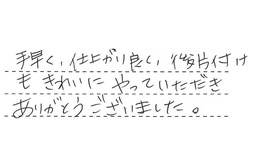 手早く、仕上がり良く、後片付け
もきれいに やっていただき
ありがとうございました。